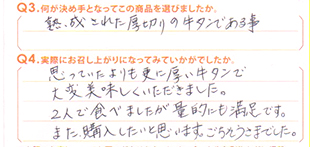 Q3.何が決め手となってこの商品を選びましたか。
熟成された厚切りの牛タンである事
Q4.実際にお召し上がりになってみていかがでしたか。
思っていたよりも更に厚い牛タンで
大変美味しくいただきました。
2人で食べましたが量的にも満足です。
また購入したいと思います。ごちそうさまでした。